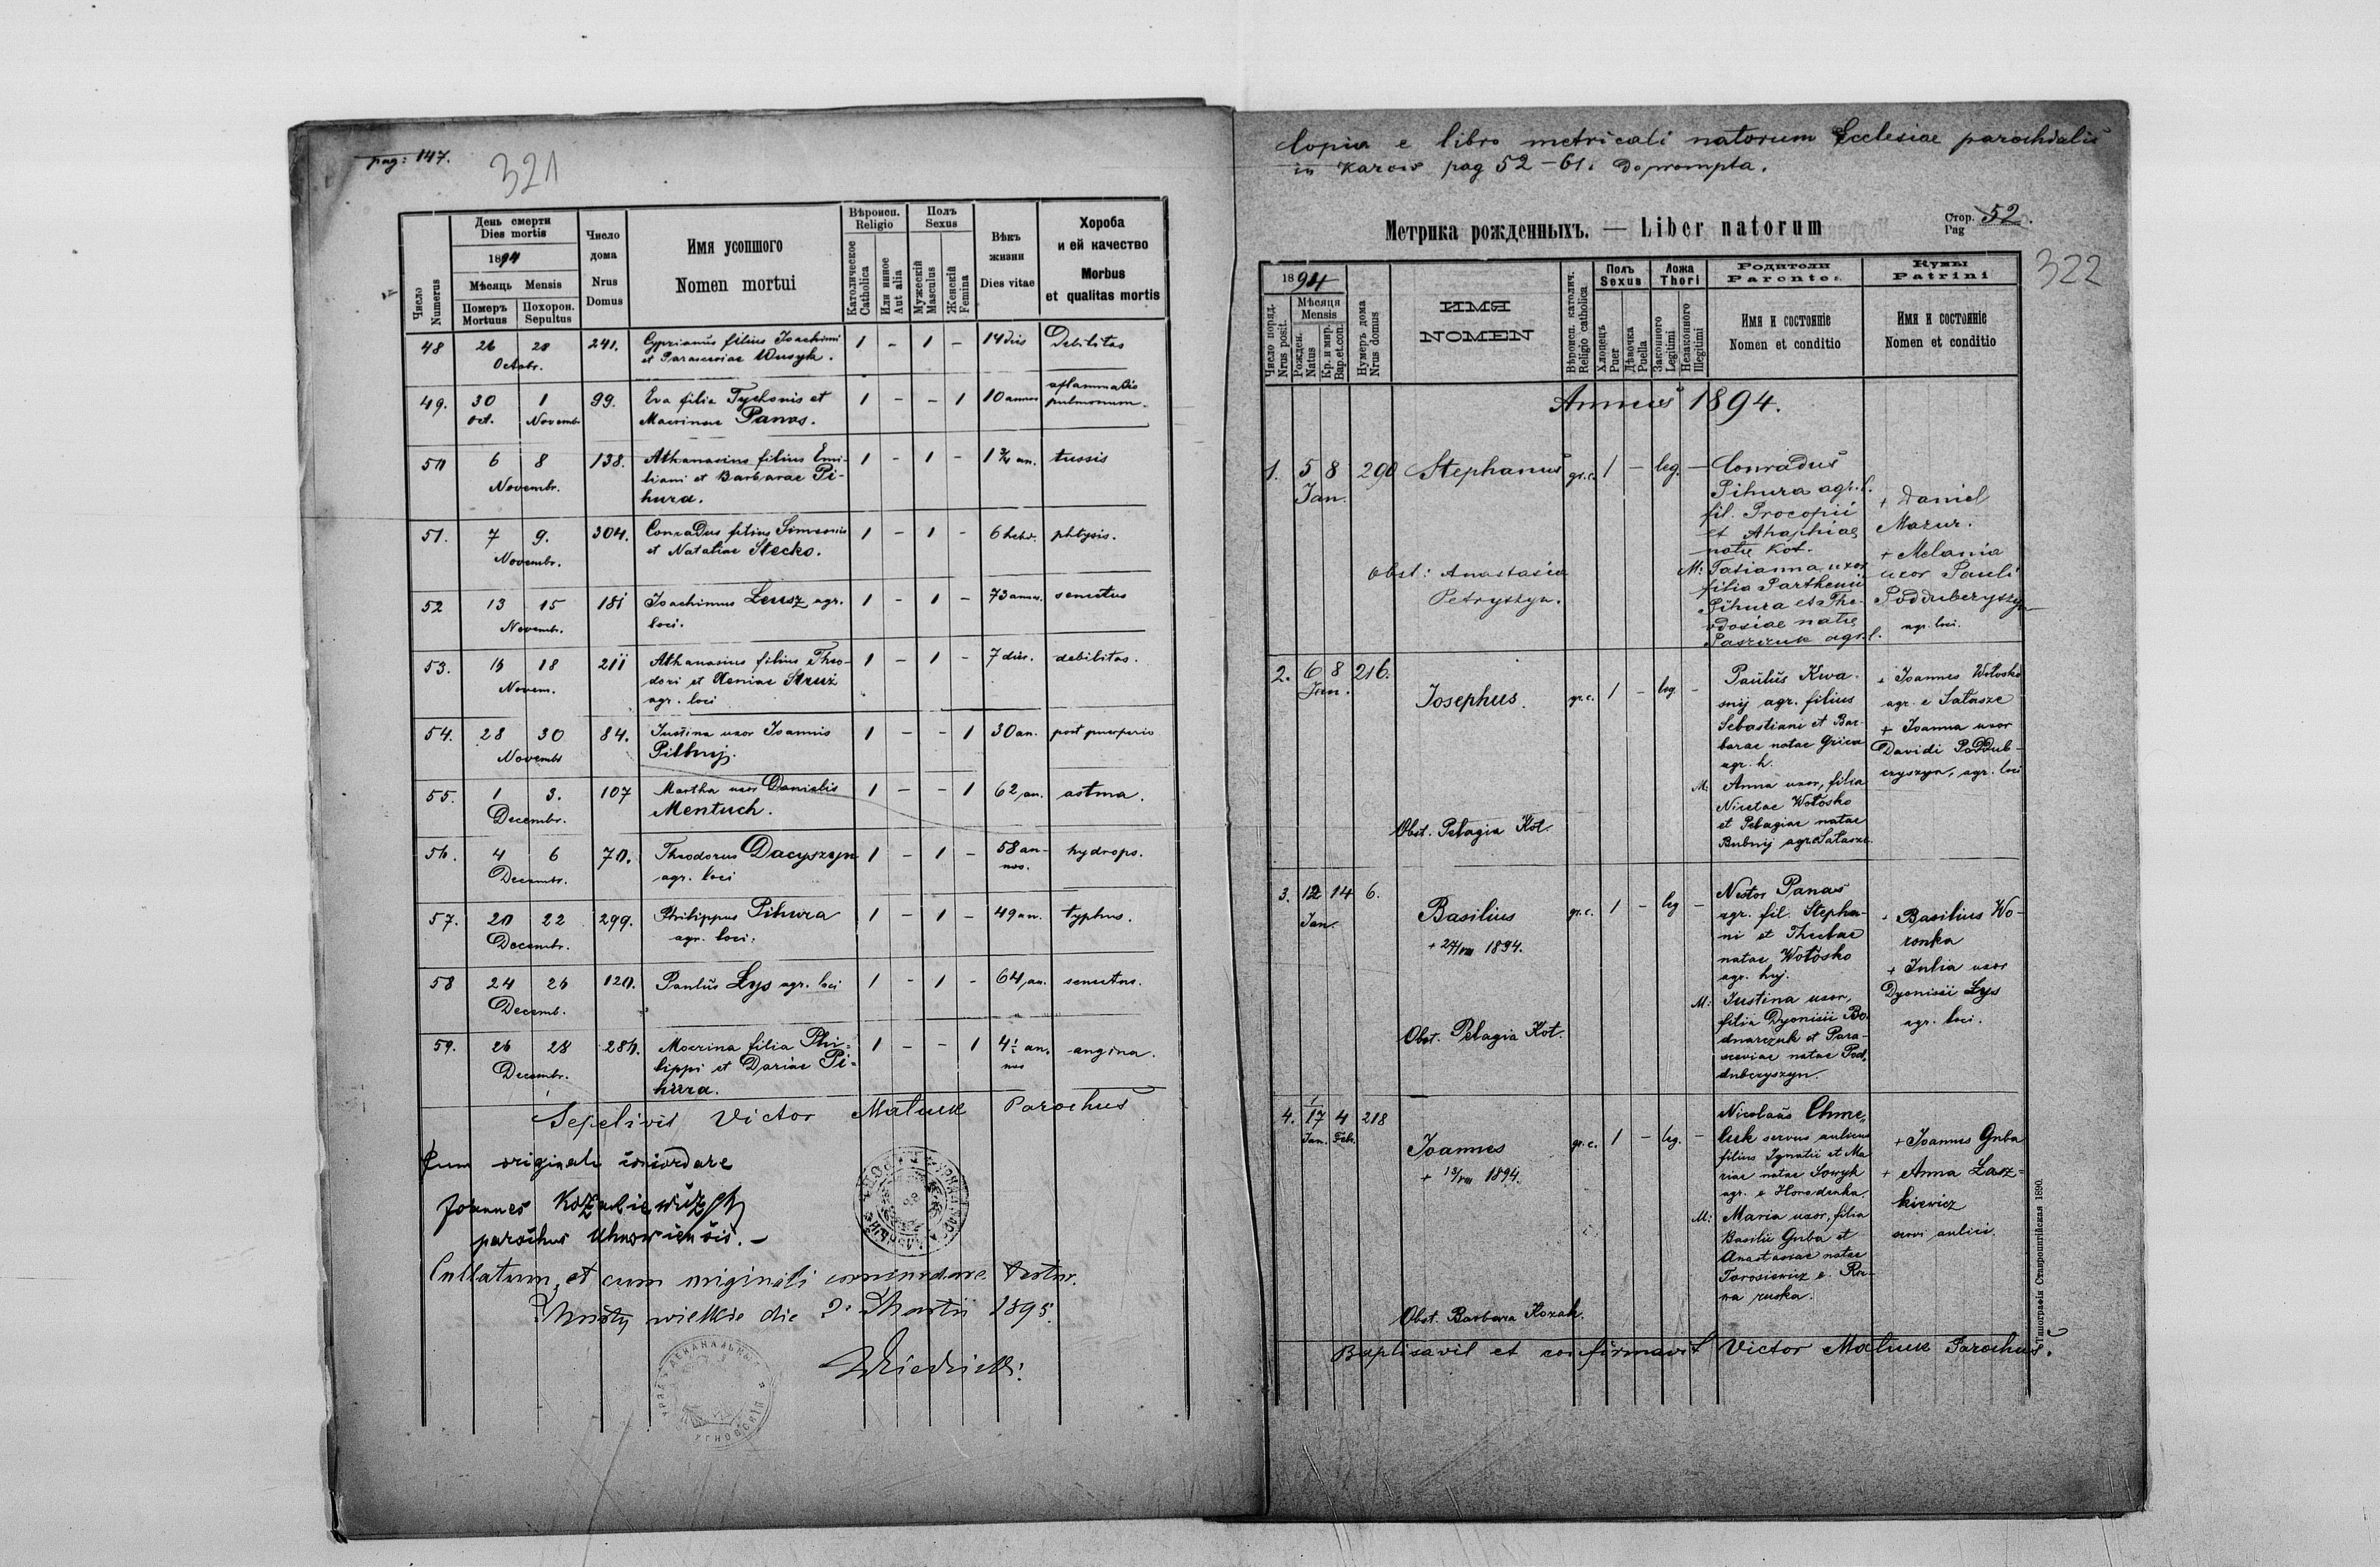 pag: 147.
321
Число Numerus
День смерти
Dies mortis
1894
Мѣсяць Mensis
Померъ Mortuus
Похорон. Sepultus
Число дома
Nrus Domus
Имя усопшого
Nomen mortui
Вѣроисп. Religio
Католическое Catholica
Или инное Aut alia
Полъ Sexus
Мужескій Masculus
Женскій Femina
Вѣкъ жизни
Dies vitae
Хороба и ей качество
Morbus et qualitas mortis
48 26 28 241. Cyprianus filius Joachimi 1 - 1 - 14 dies Debilitas
Octobr. et Parasceviae Wusyk.
49. 30 1 99. Eva filia Tychonis et 1 - - 1 10 annos
oct. Novembr. Macrinae Panas. pulmonum.
50 6 8 138. Athanasius filius Emi- 1 - 1 - tussis
Novembr. liani et Barbarae Pi-
hura.
51. 7 9. 304. Conradus filius Simeonis 1 - 1 - 6 hebd. phtysis.
Novembr. et Nataliae Stecko.
52 13 15 181 Joachimus Leusz agr. 1 - 1 - 73 annos. senectus
Novembr. loci.
53. 16 18 211 Athanasius filius Theo- 1 - 1 - 7 dies. debilitas.
Novem. dori et Xeniae
agr. loci
54. 28 30 84. Justina uxor Joannis 1 - - 1 30 an. post puerperio
Novembr
55. 1 3. 107 Martha uxor Danielis 1 - - 1 62 an. astma.
Decembr. Mentuch.
56. 4 6 70. Theodorus Dacyszyn 1 - 1 - 58 an- hydrops.
Decembr. agr. loci nos.
57. 20 22 299. Philippus Pihura 1 - 1 - 49 an. typhus.
Decembr. agr. loci.
58 24 26 120. Paulus Łys agr. loci 1 - 1 - 64 an. senectus.
Decemb.
59. 26 28 286. Macrina filia Phi- 1 - - 1 an. angina.
Decembr. lippi et Dariae Pi-
hura.
Sepelivit Victor Matiuk Parochus
Cum originali concordare
Joannes
parochus Uhnoviensis.
Collatum et cum originali concordare testor.
Mosty wielkie die 2. Martii 1895.
Copia e libro metricali natorum Ecclesiae parochialis
in Karow pag 52 - 61. Deprompta.
Метрика рожденныхъ. — Liber natorum
Стор. Pag 52.
322
1894
Число поряд. Nrus posit.
Мѣсяця Mensis
Рожден. Natus
Кр. и мир. Bap. et con.
Нумеръ дома Nrus domus
ИМЯ
NOMEN
Вѣроисп. католич. Religio catholica
Полъ Sexus
Хлопецъ Puer
Дѣвочка Puella
Ложа Thori
Законного Legitimi
Незаконного Illegitimi
Родители
Parentes
Имя и состояніе
Nomen et conditio
Кумы
Patrini
Имя и состояніе
Nomen et conditio
Annus 1894.
1. 5 8 290 Stephanus gr.c. 1 - leg. - Conradus
Jan. Pihura agr. l.
fil. Procopii + Daniel
et Ahaphiae Mazur.
natae Kot. + Melania
Obst: Anastasia M: Tatianna uxor uxor Pauli
Petryszyn. filia Parthenii Poddubczyszyn
Pihura et The- agr. loci.
odosiae natae
Paszczuk agr. l.
2. 6 8 216. Josephus. gr.c. 1 - leg. - Paulus Kwa- + Joannes Wołosko
Jan. snij agr. filius agr. e Sałasze
Sebastiani et Bar- + Joanna uxor
barae natae Grica Davidi Poddub-
agr. h. czyszyn, agr. loci
M: Anna uxor, filia
Nicetae Wołosko
Obst. Pelagia Kot. et Pelagiae natae
Bubnij agr. e Sałasze.
3. 12 14 6. Basilius gr.c. 1 - leg - Nestor Panas
Jan. + 27/VIII 1894. agr. fil. Stepha- + Basilius Wo-
ni et Theclae ronka
natae Wołosko + Julia uxor
agr. huj. Dyonisii Łys
M: Justina uxor, agr. loci.
Obst. Pelagia Kot. filia Dyonisii Bo-
dnarczuk et Para-
sceviae natae Pod-
dubczyszyn.
4. 17 4 218 Joannes gr.c. 1 - leg. - Nicolaus Chme-
Jan. Feb. + 13/VIII 1894. luk servus aulicus + Joannes Guba
filius Ignatii et Ma + Anna Łasz-
riae natae Sowyk kiewicz
agr. e Horodenka. servi aulici.
M: Maria uxor, filia
Basilii Guba et
Anastasiae natae
Torosiewicz e Ra-
Obst. Barbara Kozak. wa ruska.
Baptisavit et confirmavit Victor Matiuk Parochus.
Типографія Ставропигійская 1890.